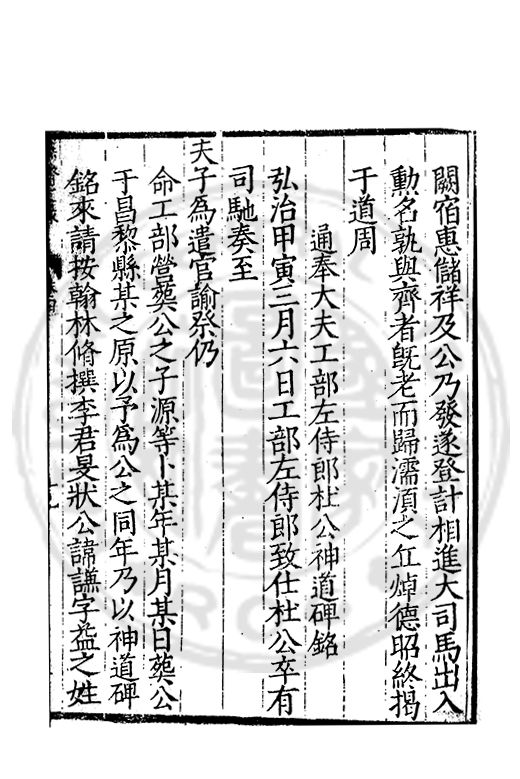 闕宿惠儲祥及公乃發遂登計相進大司馬出入
勲名孰與齊者旣老而歸濡湏之丘焯德昭終揭
于道周
通奉大夫工部左侍郎杜公神道碑銘
弘治甲寅三月六日工部左侍郎致仕杜公卒有
司馳奏至
夫子爲遣官諭祭仍
命工部營葬公之子源等卜某年某月某日葬公
于昌黎縣某之原以予爲公之同年乃以神道碑
銘來請按翰林脩撰李君旻狀公諱謙字益之姓